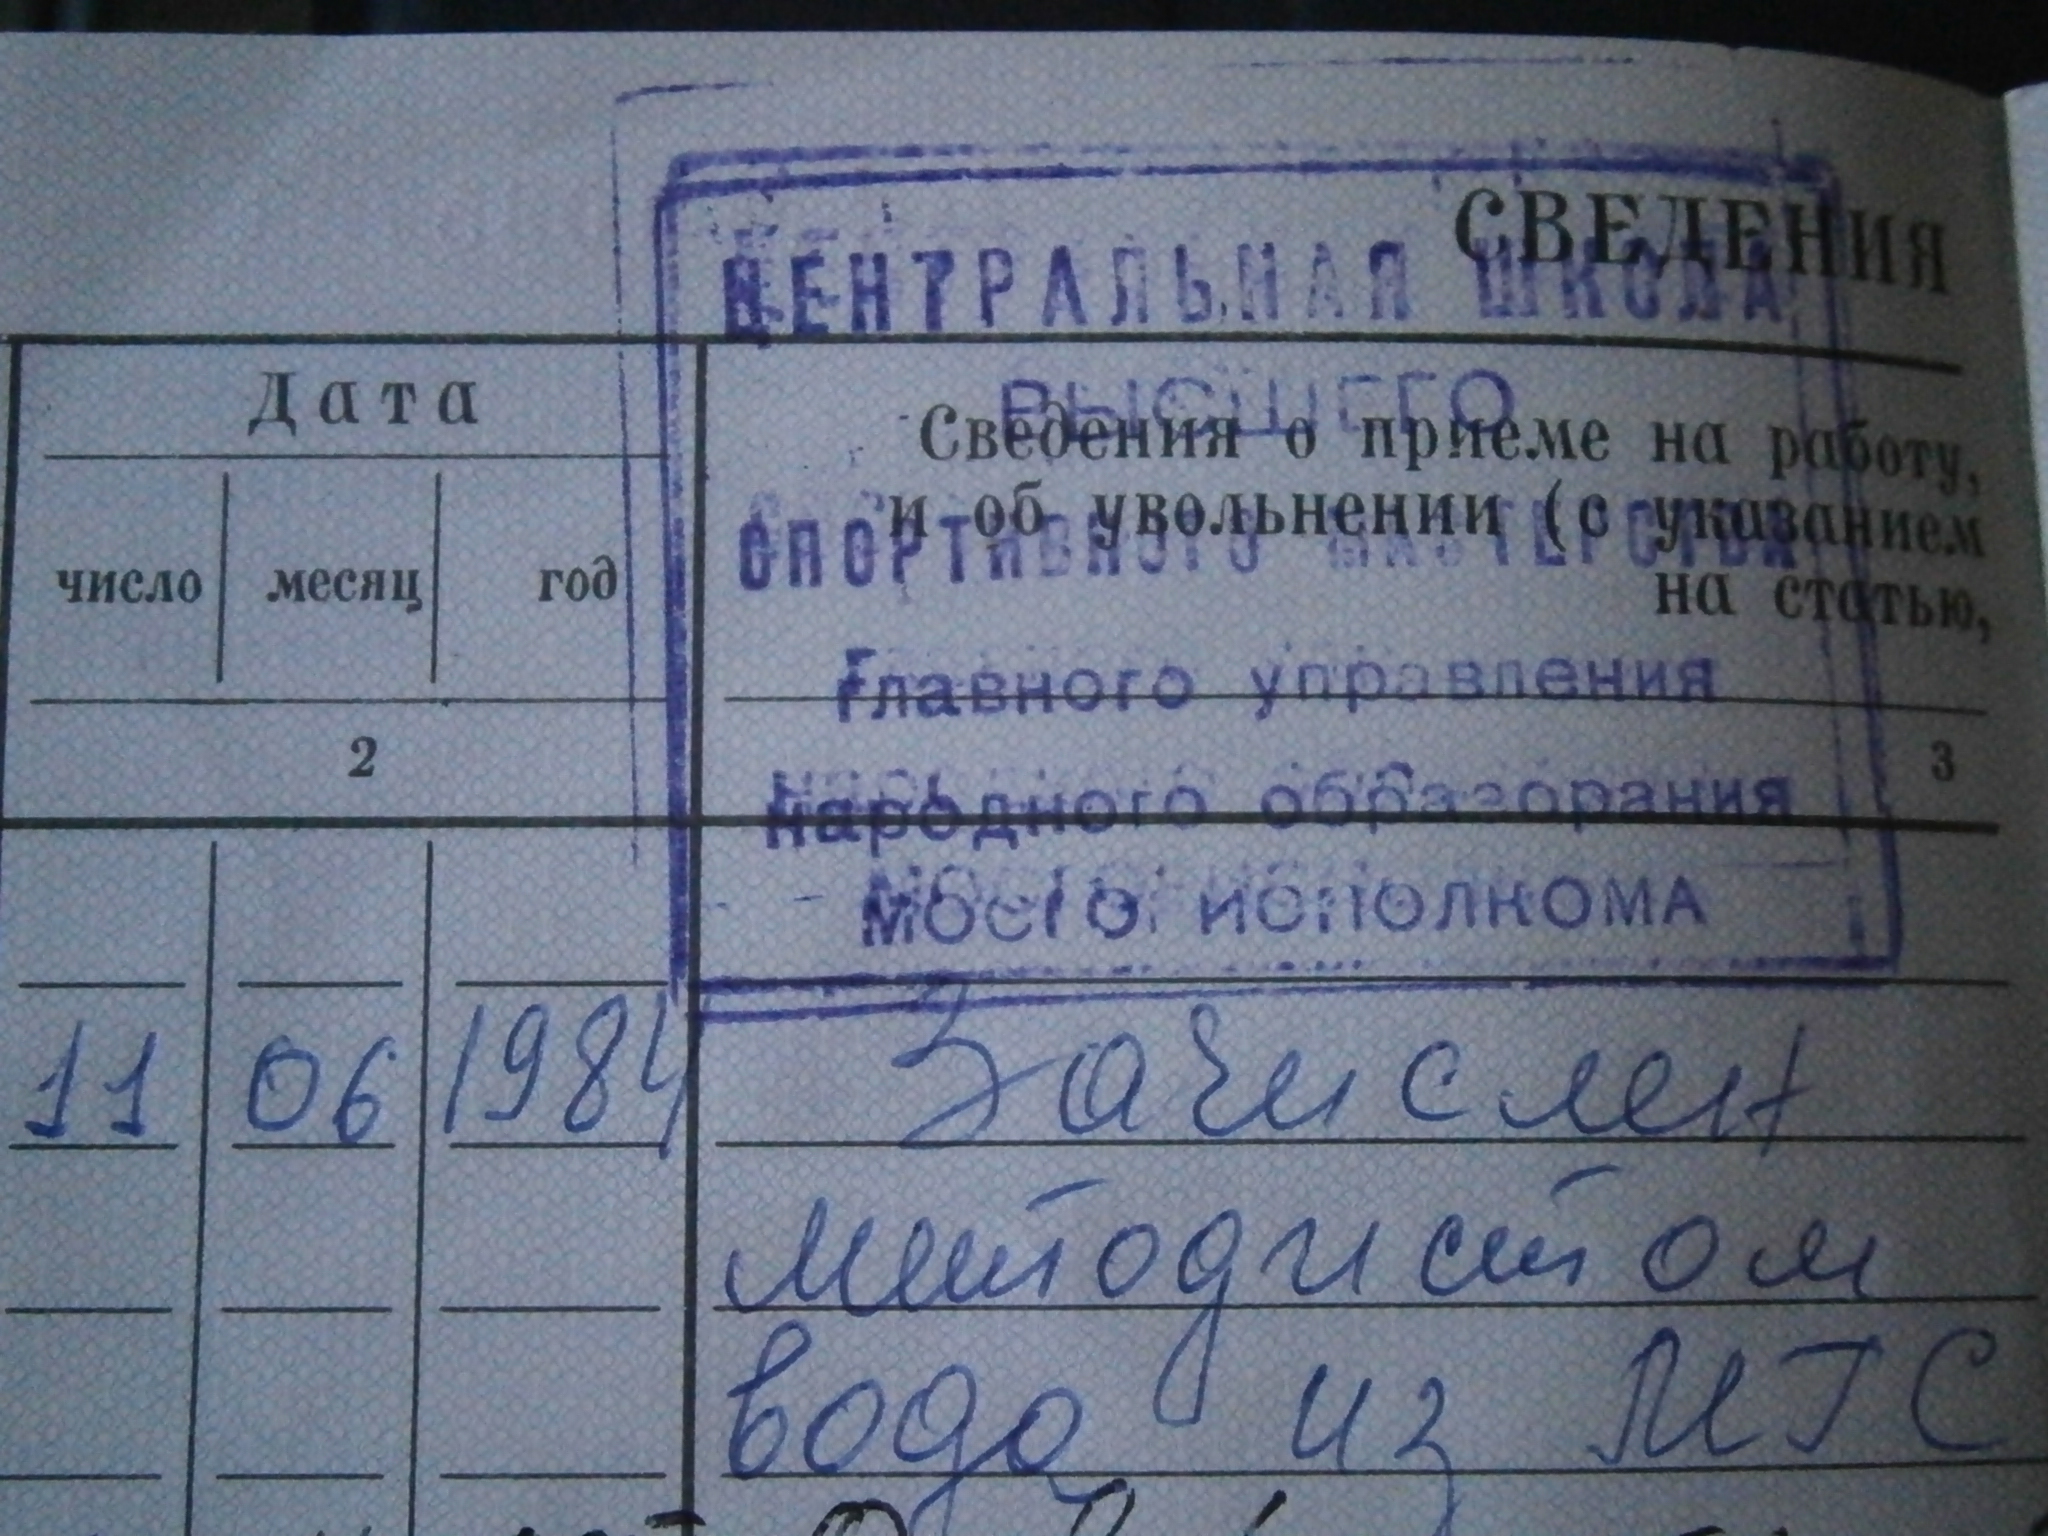 СВЕДЕНИЯ
ЦЕНТРАЛЬНАЯ ШКОЛА
ВЫСШЕГО
СПОРТИВНОГО МАСТЕРСТВА
Главного управления
народного образования
Мосгорисполкома
Дата
число месяц год
Сведения о приеме на работу,
и об увольнении (с указанием
на статью,
2 3
11 06 1984 Зачислен
методистом
вода из МГС